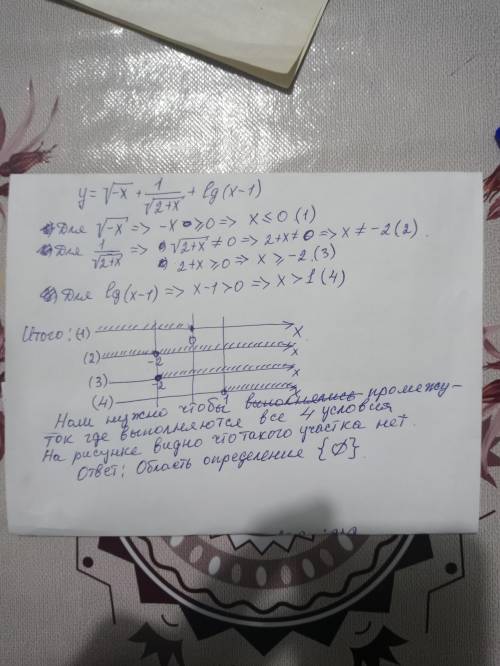 y = √-x + 1/√2+x + lg(x-1)
Для √-x => -x ≥ 0 => x ≤ 0 (1)
Для 1/√2+x => √2+x ≠ 0 => 2+x ≠ 0 => x ≠ -2 (2).
2+x ≥ 0 => x ≥ -2. (3)
Для lg(x-1) => x-1 > 0 => x > 1 (4)
Итого: (1) 0 x
(2) -2 x
(3) -2 x
(4) 1 x
Нам нужно чтобы промежу-
ток где выполняются все 4 условия.
На рисунке видно что такого участка нет.
Ответ: Область определение {∅}.